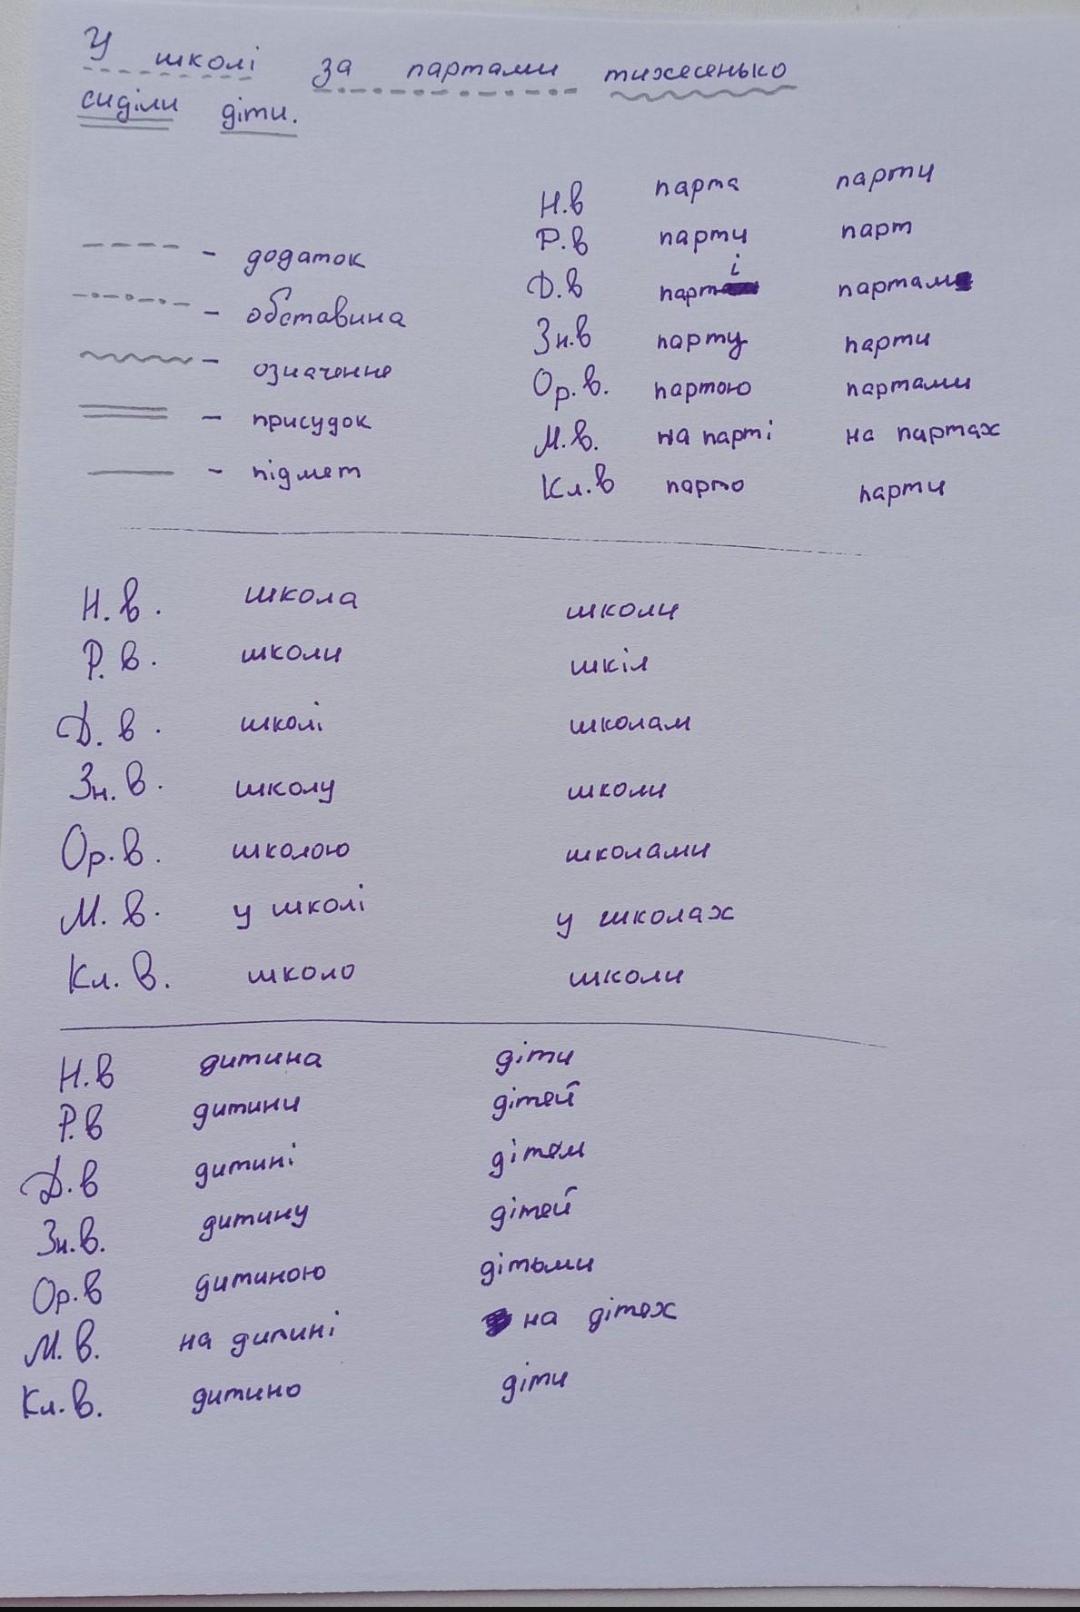 У школі за партами тихесенько
сиділи діти.
Н.в парта парти
Р.в парти парт
Д.в парті партам
Зн.в парту парти
Ор.в. партою партами
М.в. на парті на партах
Кл.в парто парти
- додаток
- обставина
- означення
- присудок
- підмет
Н.в. школа школи
Р.в. школи шкіл
Д.в. школі школам
Зн.в. школу школи
Ор.в. школою школами
М.в. у школі у школах
Кл.в. школо школи
Н.в дитина діти
Р.в дитини дітей
Д.в дитині дітям
Зн.в. дитину дітей
Ор.в дитиною дітьми
М.в. на дитині на дітях
Кл.в. дитино діти